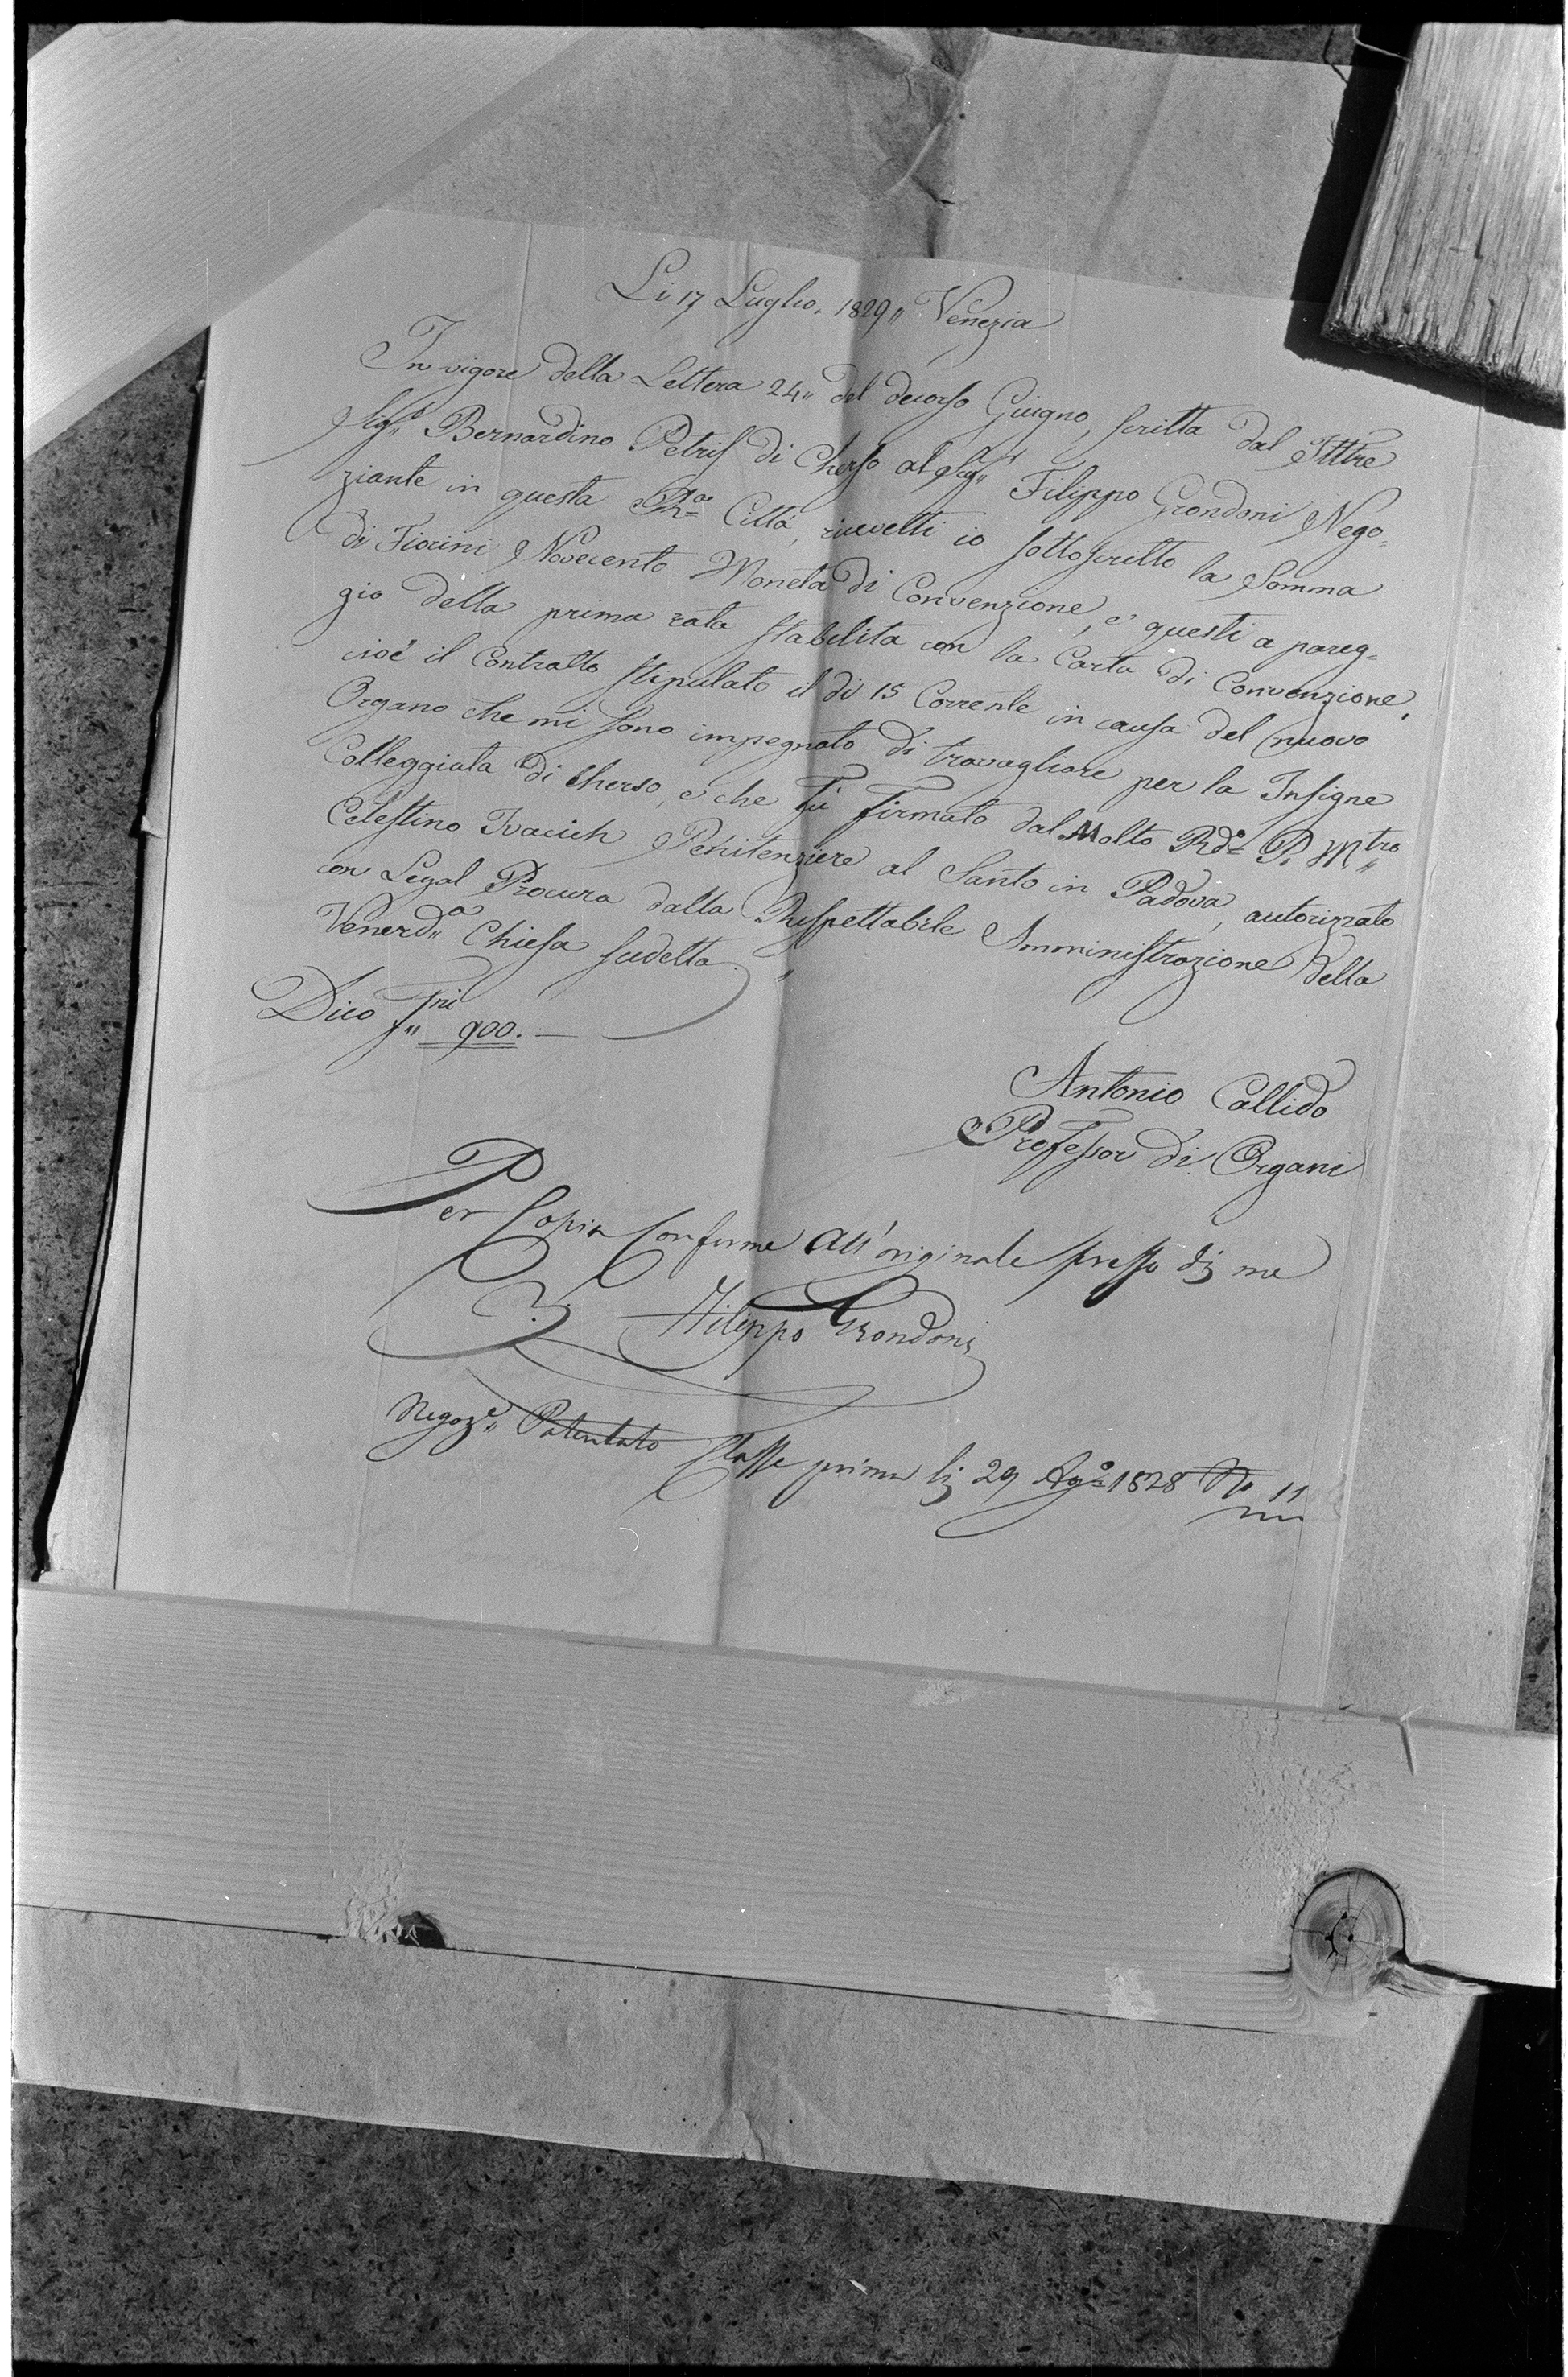 Li 17 Luglio. 1829,, Venezia
In vigore della Lettera 24,, del decorso Giugno, scritta dal Ill\u0331tre
Sig.r Bernardino Petris di Cherso al Sig.r Filippo Grondoni Nego=
ziante in questa R.a Città, ricevetti io sottoscritto la Somma
di Fiorini Novecento Moneta di Convenzione, e questi a pareg=
gio della prima rata stabilita con la Carta di Convenzione,
cioè il Contratto stipulato il dì 15 Corrente in causa del nuovo
Organo che mi sono impegnato di travagliare per la Insigne
Colleggiata di Cherso, e che fù firmato dal Molto Rd.o P. Mtro
Celestino Ivacich Penitenziere al Santo in Padova, autorizzato
con Legal Procura dalla Rispettabile Amministrazione della
Venerd.a Chiesa sudetta.
Dico f.ni 900. —
Antonio Callido
Professor di Organi
Per Copia Conforme all'originale presso di me
Filippo Grondoni
Negoz.e Patentato Classe prima li 29 Ag.o 1828 No 11